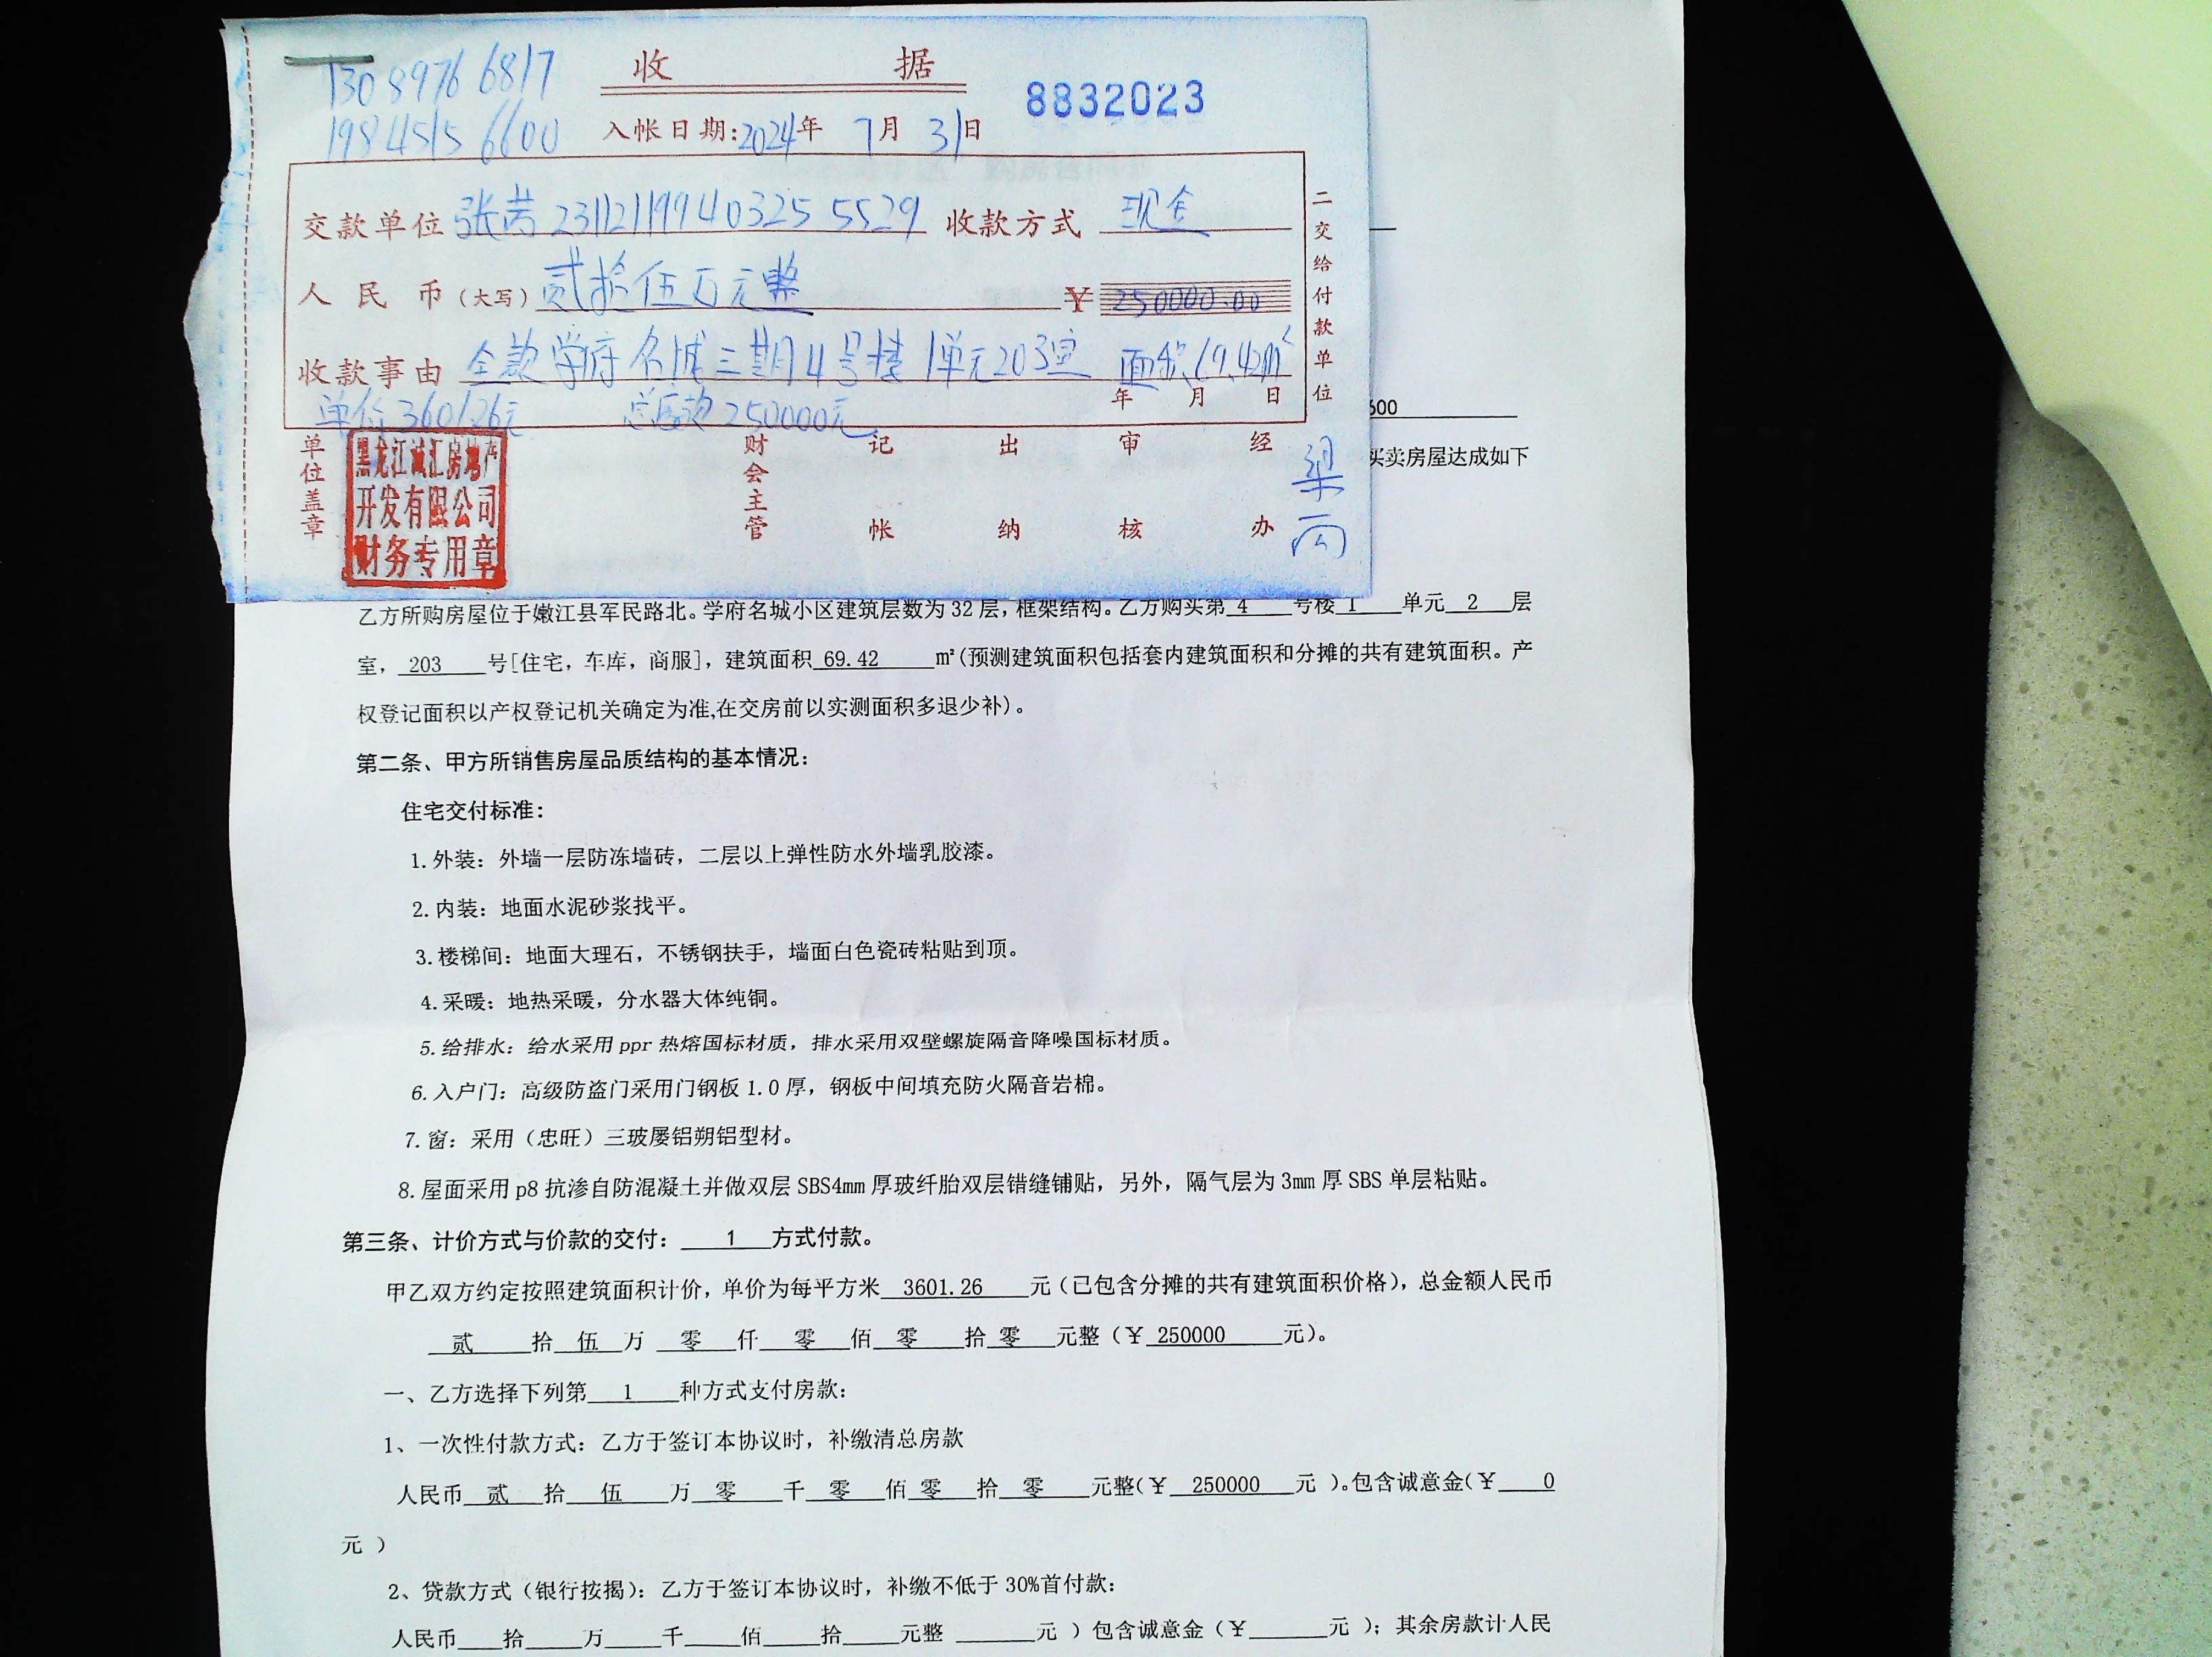 130 8976 6817
198 4515 6600
收 据
8832023
入帐日期:2024年 7月 31日
交款单位 张茜 231121199403255529 收款方式 现金
人民币(大写) 贰拾伍万元整 ￥250000.00
收款事由 全款学府名城三期4号楼1单元203室 面积69.42m²
年 月 日
单价3601.26元 总房款250000元
二交给付款单位
单位盖章 财会主管 记帐 出纳 审核 经办 梁丙
黑龙江诚汇房地产
开发有限公司
财务专用章
600
买卖房屋达成如下
乙方所购房屋位于嫩江县军民路北。学府名城小区建筑层数为32层，框架结构。乙方购买第 4 号楼 1 单元 2 层
室， 203 号[住宅，车库，商服]，建筑面积 69.42 m²(预测建筑面积包括套内建筑面积和分摊的共有建筑面积。产
权登记面积以产权登记机关确定为准,在交房前以实测面积多退少补)。
第二条、甲方所销售房屋品质结构的基本情况：
住宅交付标准：
1.外装：外墙一层防冻墙砖，二层以上弹性防水外墙乳胶漆。
2.内装：地面水泥砂浆找平。
3.楼梯间：地面大理石，不锈钢扶手，墙面白色瓷砖粘贴到顶。
4.采暖：地热采暖，分水器大体纯铜。
5.给排水：给水采用ppr热熔国标材质，排水采用双壁螺旋隔音降噪国标材质。
6.入户门：高级防盗门采用门钢板1.0厚，钢板中间填充防火隔音岩棉。
7.窗：采用（忠旺）三玻屡铝朔铝型材。
8.屋面采用p8抗渗自防混凝土并做双层SBS4mm厚玻纤胎双层错缝铺贴，另外，隔气层为3mm厚SBS单层粘贴。
第三条、计价方式与价款的交付： 1 方式付款。
甲乙双方约定按照建筑面积计价，单价为每平方米 3601.26 元（已包含分摊的共有建筑面积价格），总金额人民币
贰 拾 伍 万 零 仟 零 佰 零 拾 零 元整（￥ 250000 元）。
一、乙方选择下列第 1 种方式支付房款：
1、一次性付款方式：乙方于签订本协议时，补缴清总房款
人民币 贰 拾 伍 万 零 千 零 佰 零 拾 零 元整(￥ 250000 元 )。包含诚意金(￥ 0
元 )
2、贷款方式（银行按揭）：乙方于签订本协议时，补缴不低于30%首付款：
人民币___拾____万____千____佰____拾____元整 ______元 ）包含诚意金（￥______元 ）；其余房款计人民